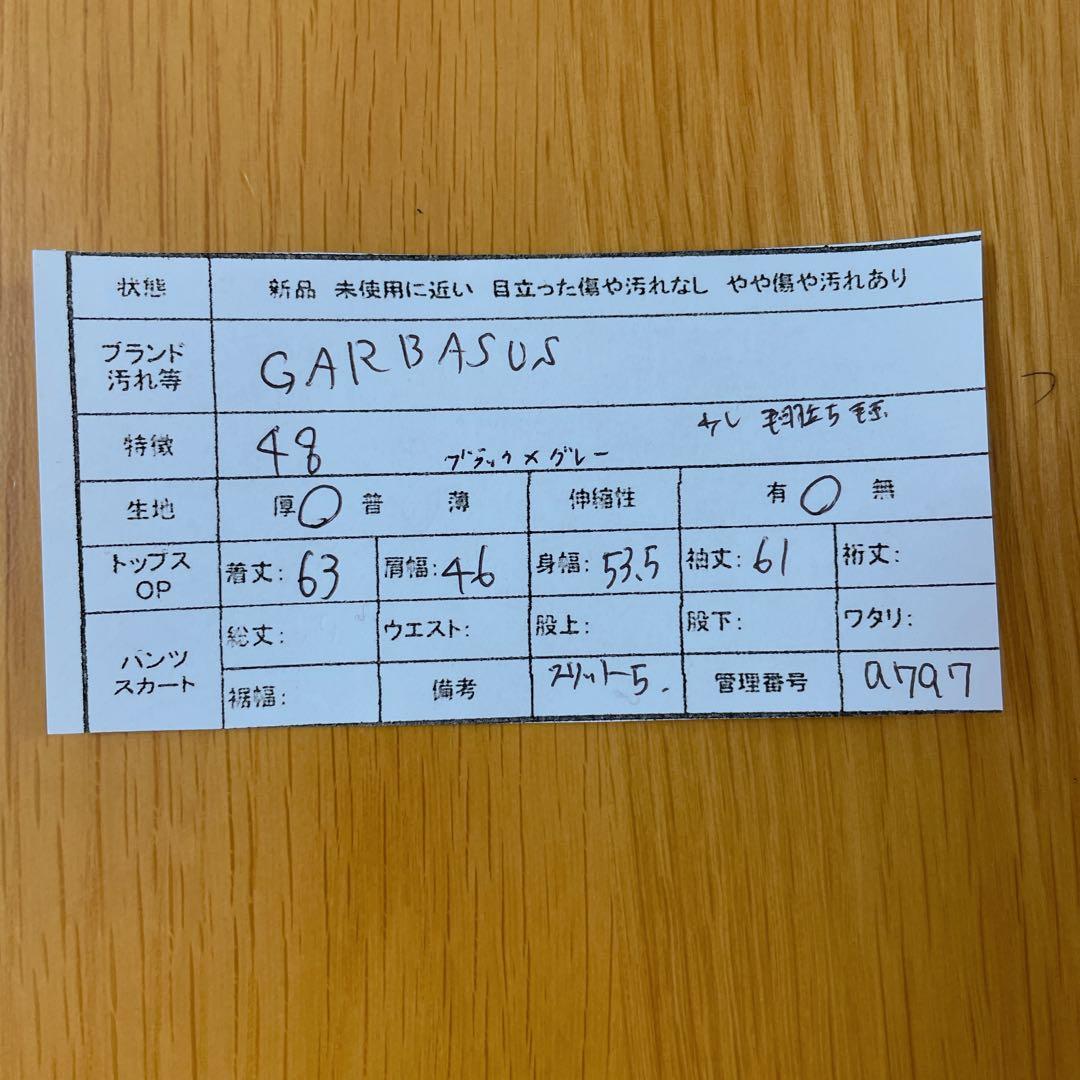 状態 新品 未使用に近い 目立った傷や汚れなし やや傷や汚れあり
ブランド
汚れ等
GARBASUS
特徴 48 ブラック×グレー 少し 毛羽立ち 毛玉
生地 厚○普 薄 伸縮性 有○無
トップス
OP
着丈:63 肩幅:46 身幅:53.5 袖丈:61 裄丈:
パンツ
スカート
総丈: ウエスト: 股上: 股下: ワタリ:
裾幅: 備考 スリット5. 管理番号 a797